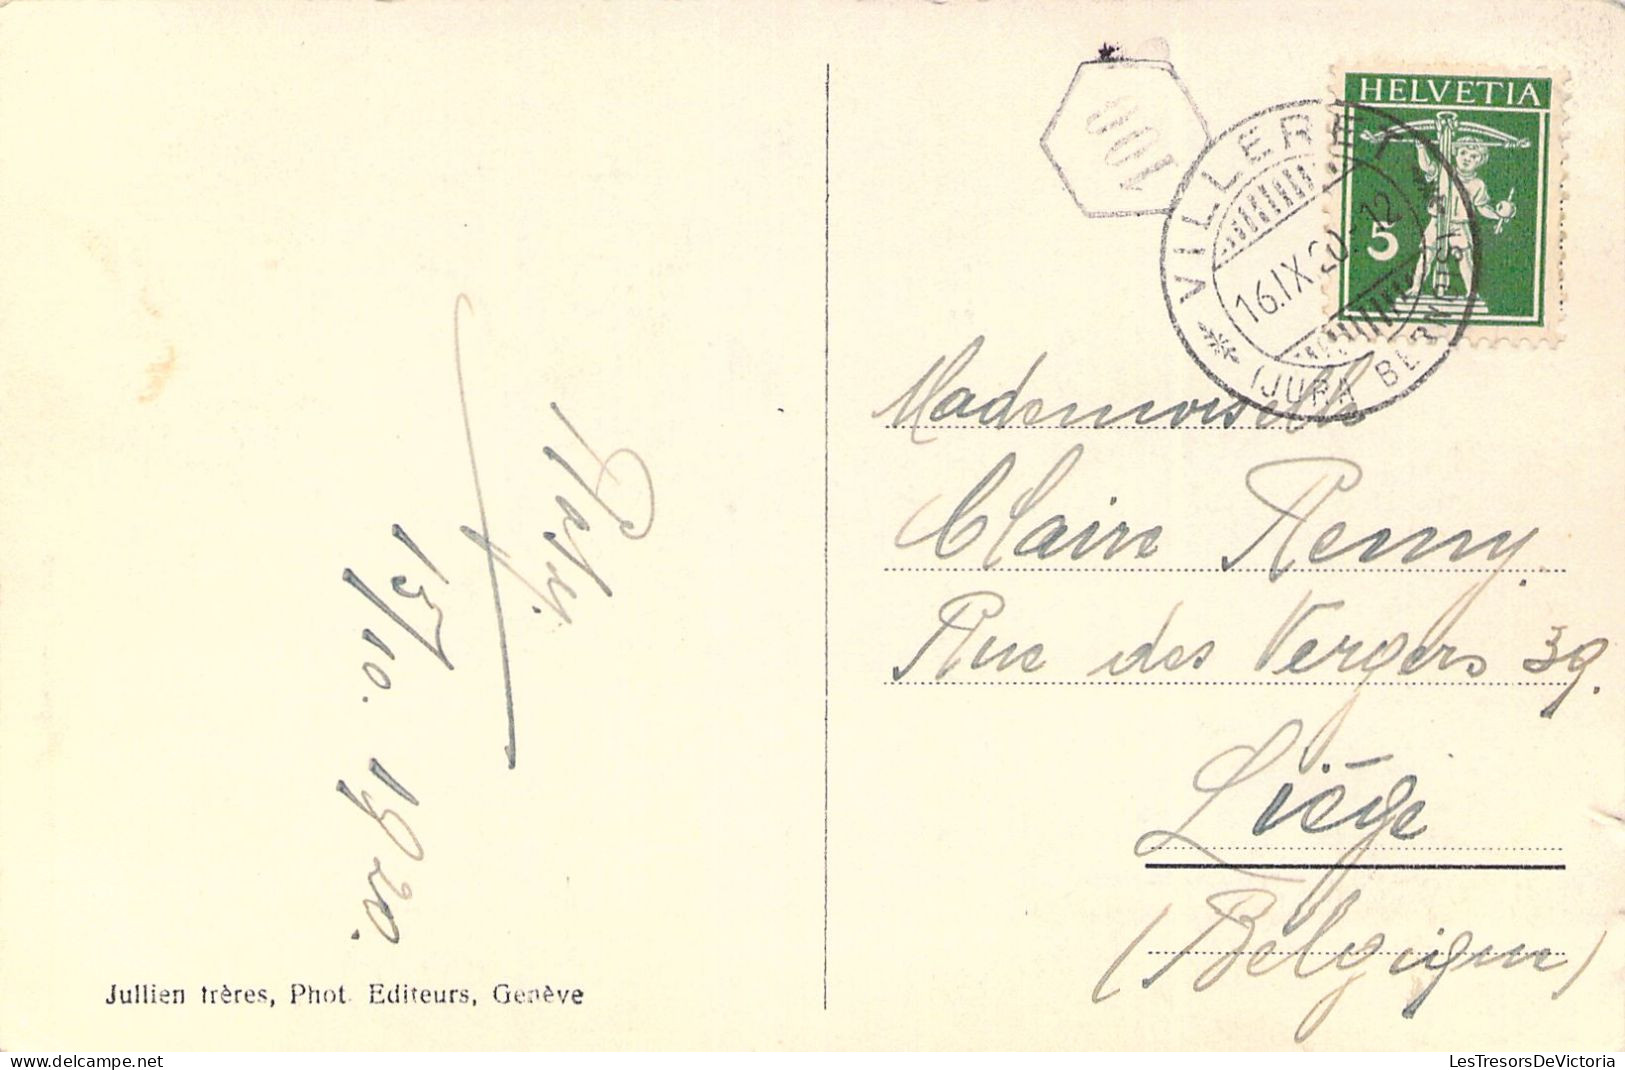 15/10. 1920.
Jullien frères, Phot. Editeurs, Genève
001
HELVETIA
5
VILLERET
16.IX.20.-12
(JURA BERNOIS)
Mademoiselle
Claire Remy.
Rue des Vergers 39.
Liège
(Belgique)
LesTresorsDeVictoria
delcampe.net